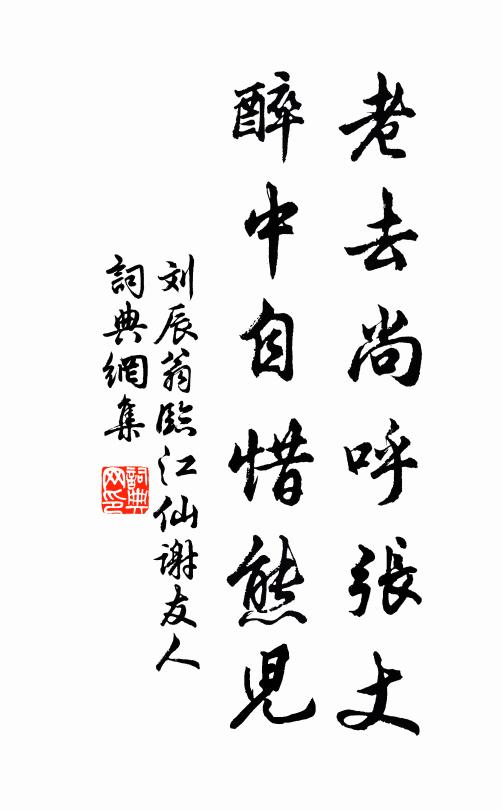 老去尚呼張丈
醉中自惜熊児
刘辰翁臨江仙謝友人
詞典網集
詞典
网印